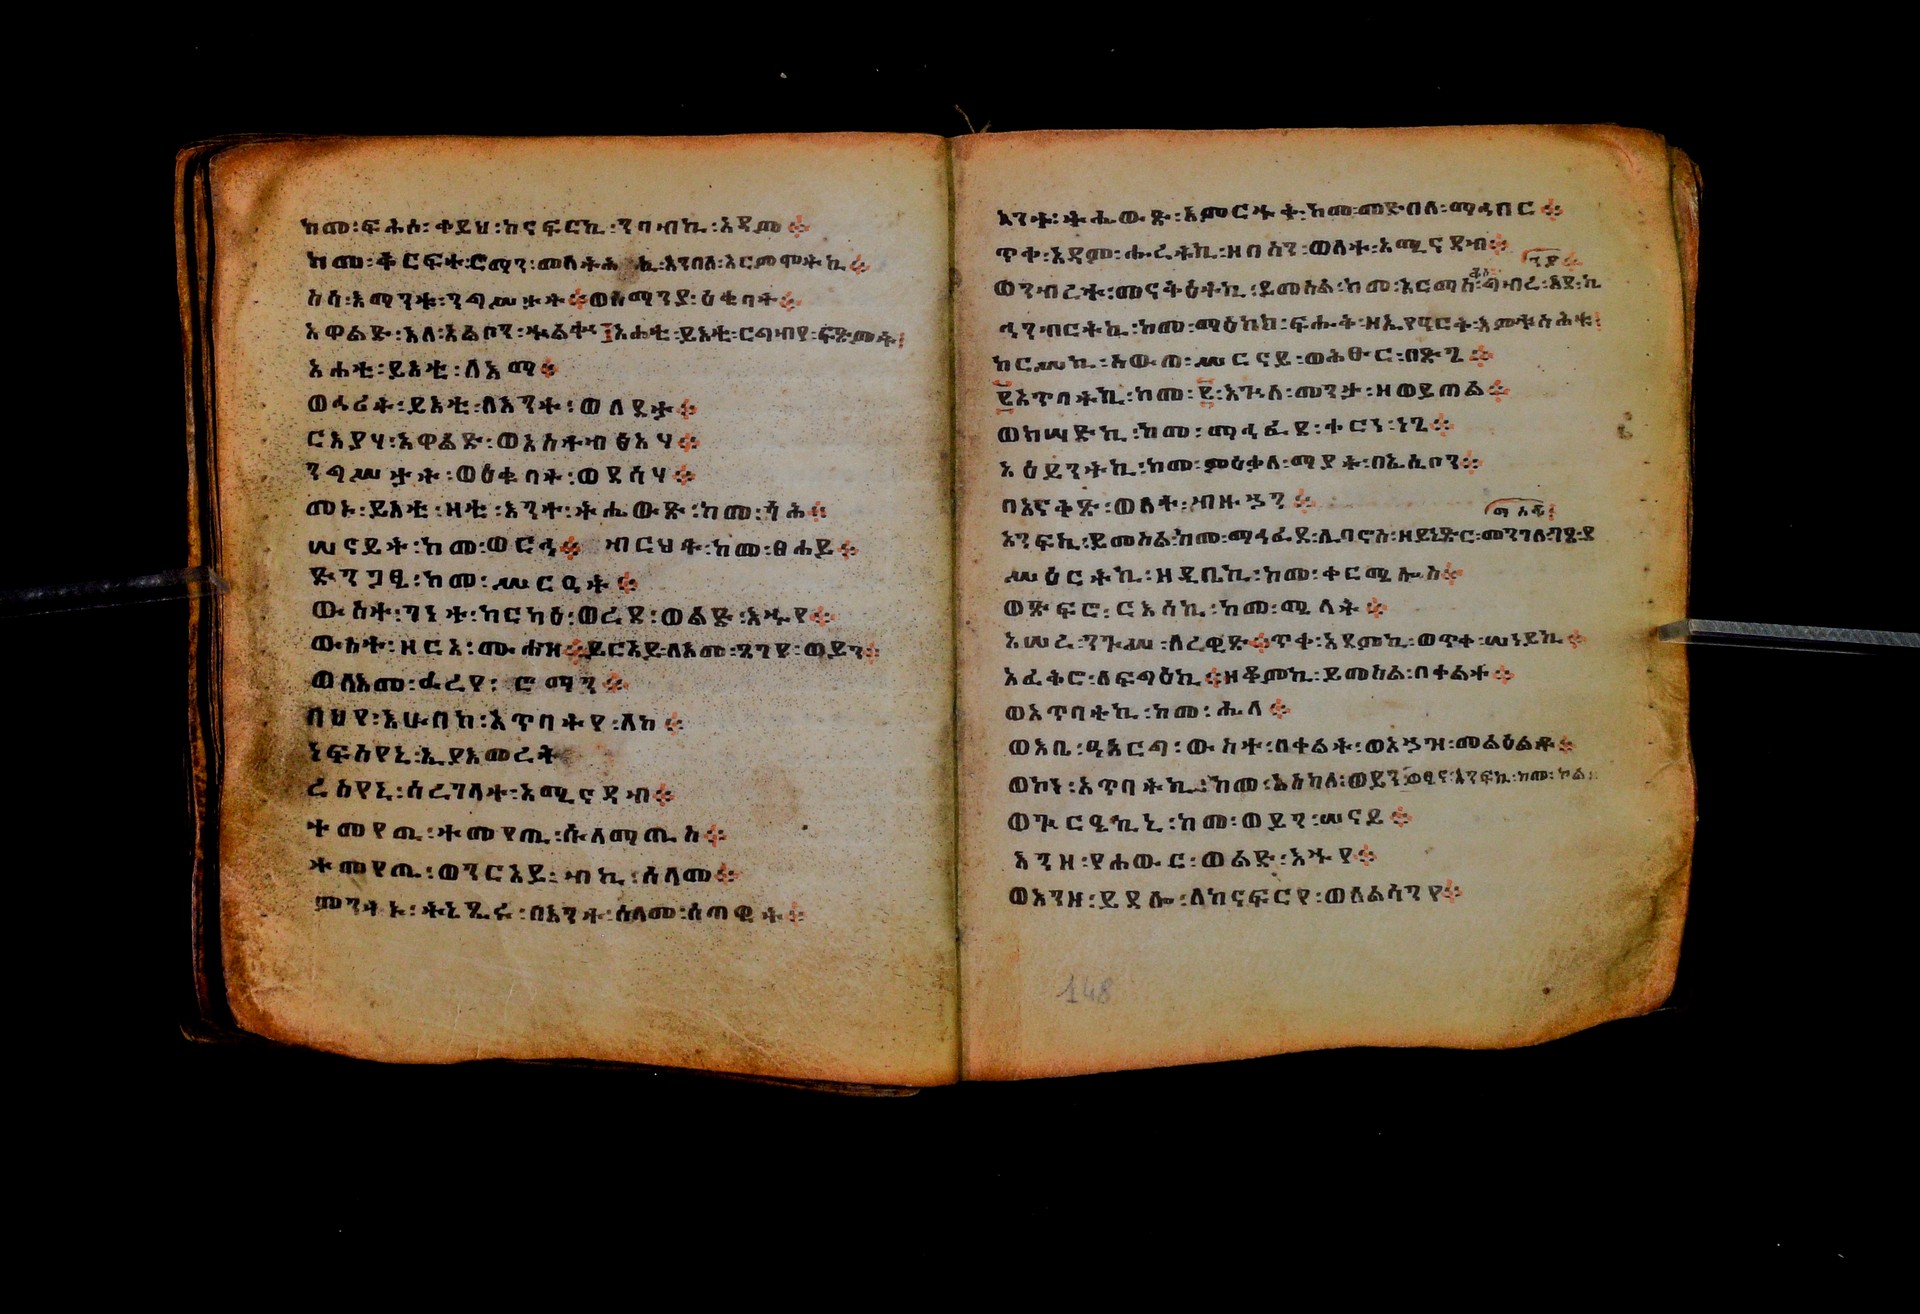 ከመ፡ፍሕሶ፡ቀይህ፡ከናፍርኪ፡ንባብኪ፡አዳም፨
ከመ፡ቅርፍተ፡ሮማን፡መላትሕኪ፡እንበለ፡አርምሞትኪ፨
ስሳ፡እማንቱ፡ንግሥታት፨ወሰማንያ፡ዕቁባት፨
አዋልድ፡እለ፡አልቦን፡ኍልቈ፡፩አሐቲ፡ይእቲ፡ርግብየ፡ፍጽምት፨
አሐቲ፡ይእቲ፡ለእማ፨
ወኅሪት፡ይእቲ፡ለእንተ፡ወለደታ፨
ርእያሃ፡አዋልድ፡ወአስተብፅእሃ፨
ንግሥታት፡ወዕቁባት፡ወደሳሃ፨
መኑ፡ይእቲ፡ዛቲ፡እንተ፡ትሔውጽ፡ከመ፡ጎሕ፨
ሠናይት፡ከመ፡ወርኅ፨ ብርህት፡ከመ፡ፀሐይ፨
ድንግፂ፡ከመ፡ሥርዒት፨
ውስተ፡ገነተ፡ከርካዕ፡ወረደ፡ወልድ፡እኁየ፨
ውስተ፡ዘርአ፡ሙሓዝ፨ይርአይ፡ለእመ፡ጸገየ፡ወይን፨
ወለእመ፡ፈረየ፡ ሮማን፨
በህየ፡እሁበከ፡አጥባትየ፡ለከ፨
ነፍስየኒ፡ኢያእመረት
ረሰየኒ፡ሰረገላተ፡አሚናዳብ፨
ተመየጢ፡ተመየጢ፡ሱላማጢስ፨
ተመየጢ፡ወንርአይ፡ብኪ፡ሰላመ፨
ምንተ፡ኑ፡ትኔጽሩ፡በእንተ፡ሰላመ፡ሰጣዊት፨
እንተ፡ትሔውጽ፡እምርኁቅ፡ከመ፡መጽበለ፡ማኅበር፨
ጥቀ፡አዳም፡ሑረቶኪ፡ዘበአሣእን፡ወለተ፡አሚናዳብ፨
ወንብረተ፡መናቅዕትኪ፡ይመስል፡ከመ፡እርማስቆስ፡ግብረ፡እደ፡ኬንያ፨
ኅንብርትኪ፡ከመ፡ማዕከክ፡ፍሑቅ፡ዘኢየኀርቅ፡እምቱስሕት፨
ከርሥኪ፡ክውጠ፡ሥርናይ፡ወሕፁር፡በጽጌ፨
፪አጥባትኪ፡ከመ፡፪፡እጕለ፡መንታ፡ዘወይጠል፨
ወክሣድኪ፡ከመ፡ማኅፈደ፡ቀርነ፡ነጌ፨
አዕይንትኪ፡ከመ፡ምዕቃለ፡ማያት፡በኤሲቦን፨
በአናቅጽ፡ወለተ፡ብዙኃን፨
አንፍኪ፡ይመስል፡ከመ፡ማኅፈደ፡ሊባኖስ፡ዘይኔጽር፡መንገለ፡ገጸ፡ደማስቆ፨
ሥዕርትኪ፡ዘዲቤኪ፡ከመ፡ቀርሜሎስ፨
ወጽፍሮ፡ርእሰኪ፡ከመ፡ሜላት፨
አሠረ፡ንጉሥ፡ለረዊጽ፨ጥቀ፡አደምኪ፡ወጥቀ፡ሠነይኪ፨
አፈቅሮ፡ለፍግዕኪ፨ዘቆምኪ፡ይመስል፡በቀልተ፨
ወአጥባትኪ፡ከመ፡ሔለ፨
ወእቤ፡ዓእርግ፡ውስተ፡በቀልት፡ወእኅዝ፡መልዕልታ፨
ወኮነ፡አጥባትኪ፡ከመ፡አስካለ፡ወይን፡ወፄና፡አንፍኪ፡ከመ፡ኮል፨
ወጕርዔኪኒ፡ከመ፡ወይን፡ሠናይ፨
እንዘ፡የሐውር፡ወልድ፡እኁየ፨
ወእንዘ፡ይደሉ፡ለከናፍርየ፡ወለልሳንየ፨
148